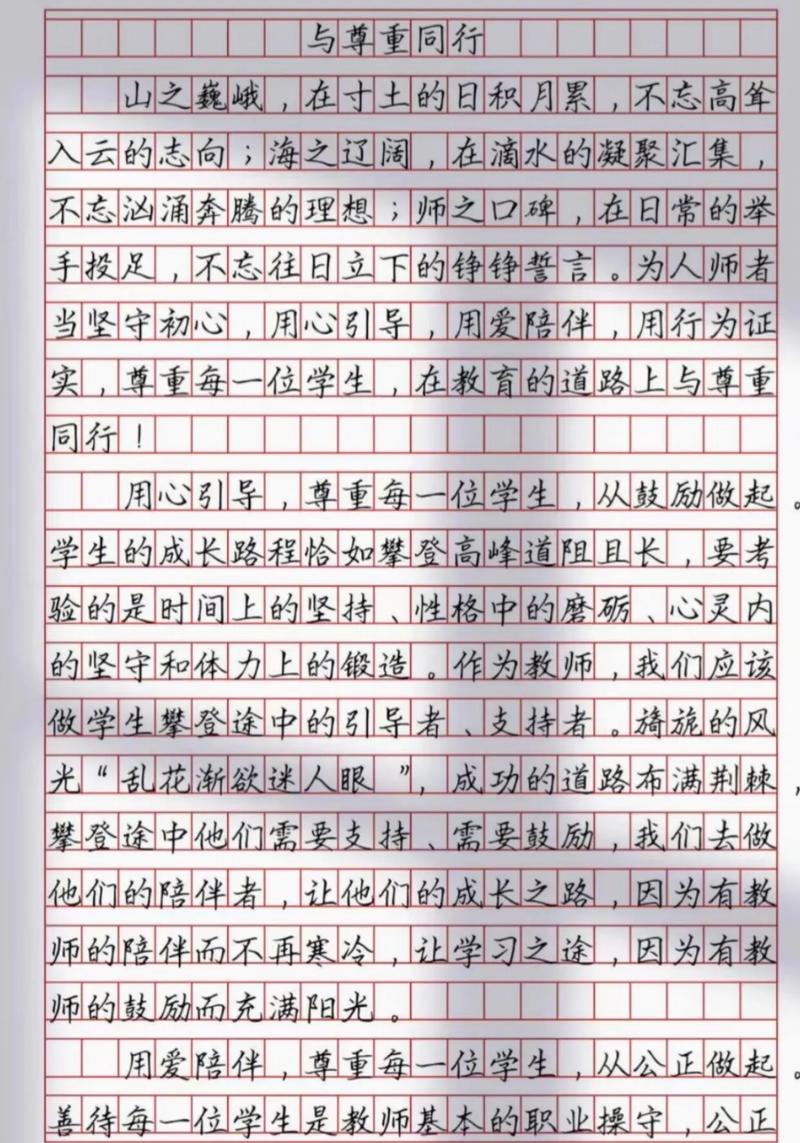 与尊重同行
山之巍峨，在寸土的日积月累，不忘高耸
入云的志向；海之辽阔，在滴水的凝聚汇集，
不忘汹涌奔腾的理想；师之口碑，在日常的举
手投足，不忘往日立下的铮铮誓言。为人师者
当坚守初心，用心引导，用爱陪伴，用行为证
实，尊重每一位学生，在教育的道路上与尊重
同行！
用心引导，尊重每一位学生，从鼓励做起。
学生的成长路程恰如攀登高峰道阻且长，要考
验的是时间上的坚持、性格中的磨砺、心灵内
的坚守和体力上的锻造。作为教师，我们应该
做学生攀登途中的引导者、支持者。旖旎的风
光“乱花渐欲迷人眼”，成功的道路布满荆棘，
攀登途中他们需要支持、需要鼓励，我们去做
他们的陪伴者，让他们的成长之路，因为有教
师的陪伴而不再寒冷，让学习之途，因为有教
师的鼓励而充满阳光。
用爱陪伴，尊重每一位学生，从公正做起。
善待每一位学生是教师基本的职业操守，公正